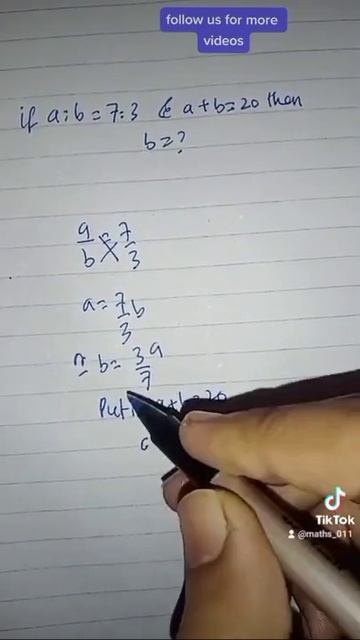 follow us for more
videos
if a:b = 7:3 & a+b=20 then
b=?
a/b = 7/3
a= 7/3 b
b= 3a/7
Put a+b=20
TikTok
@maths_011